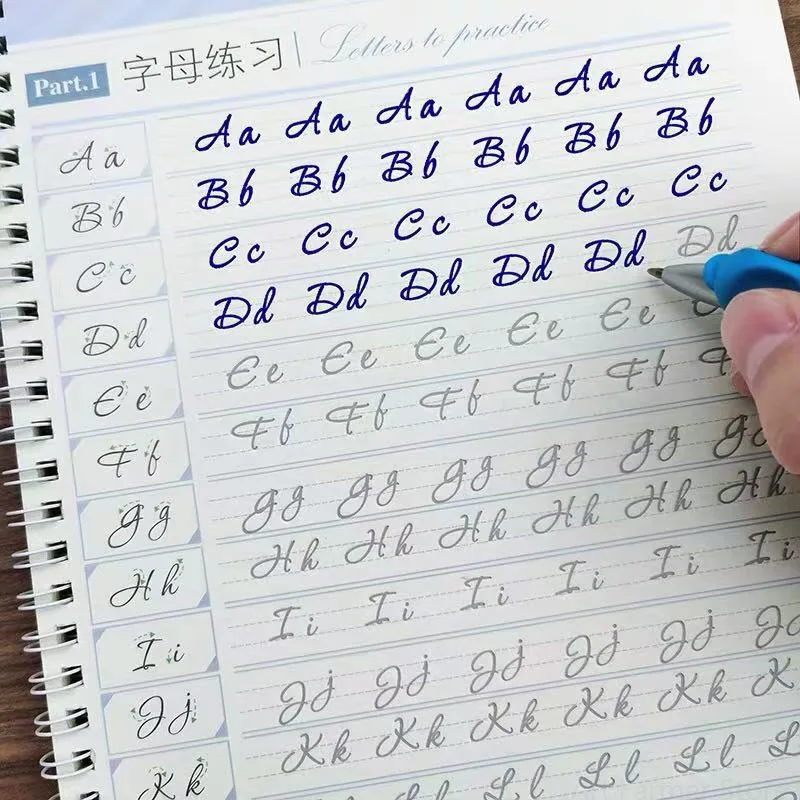 Part.1 字母练习 Letters to practice
Aa Aa Aa Aa Aa Aa Aa
Bb Bb Bb Bb Bb Bb Bb
Cc Cc Cc Cc Cc Cc Cc
Dd Dd Dd Dd Dd Dd Dd
Ee Ee Ee Ee Ee Ee
Ff Ff Ff Ff Ff Ff F
Gg Gg Gg Gg Gg Gg Gg
Hh Hh Hh Hh Hh Hh Hh
Ii Ii Ii Ii Ii Ii Ii
Jj Jj Jj Jj Jj Jj J
Kk Kk Kk Kk Kk Kk K
Ll Ll Ll Ll Ll L